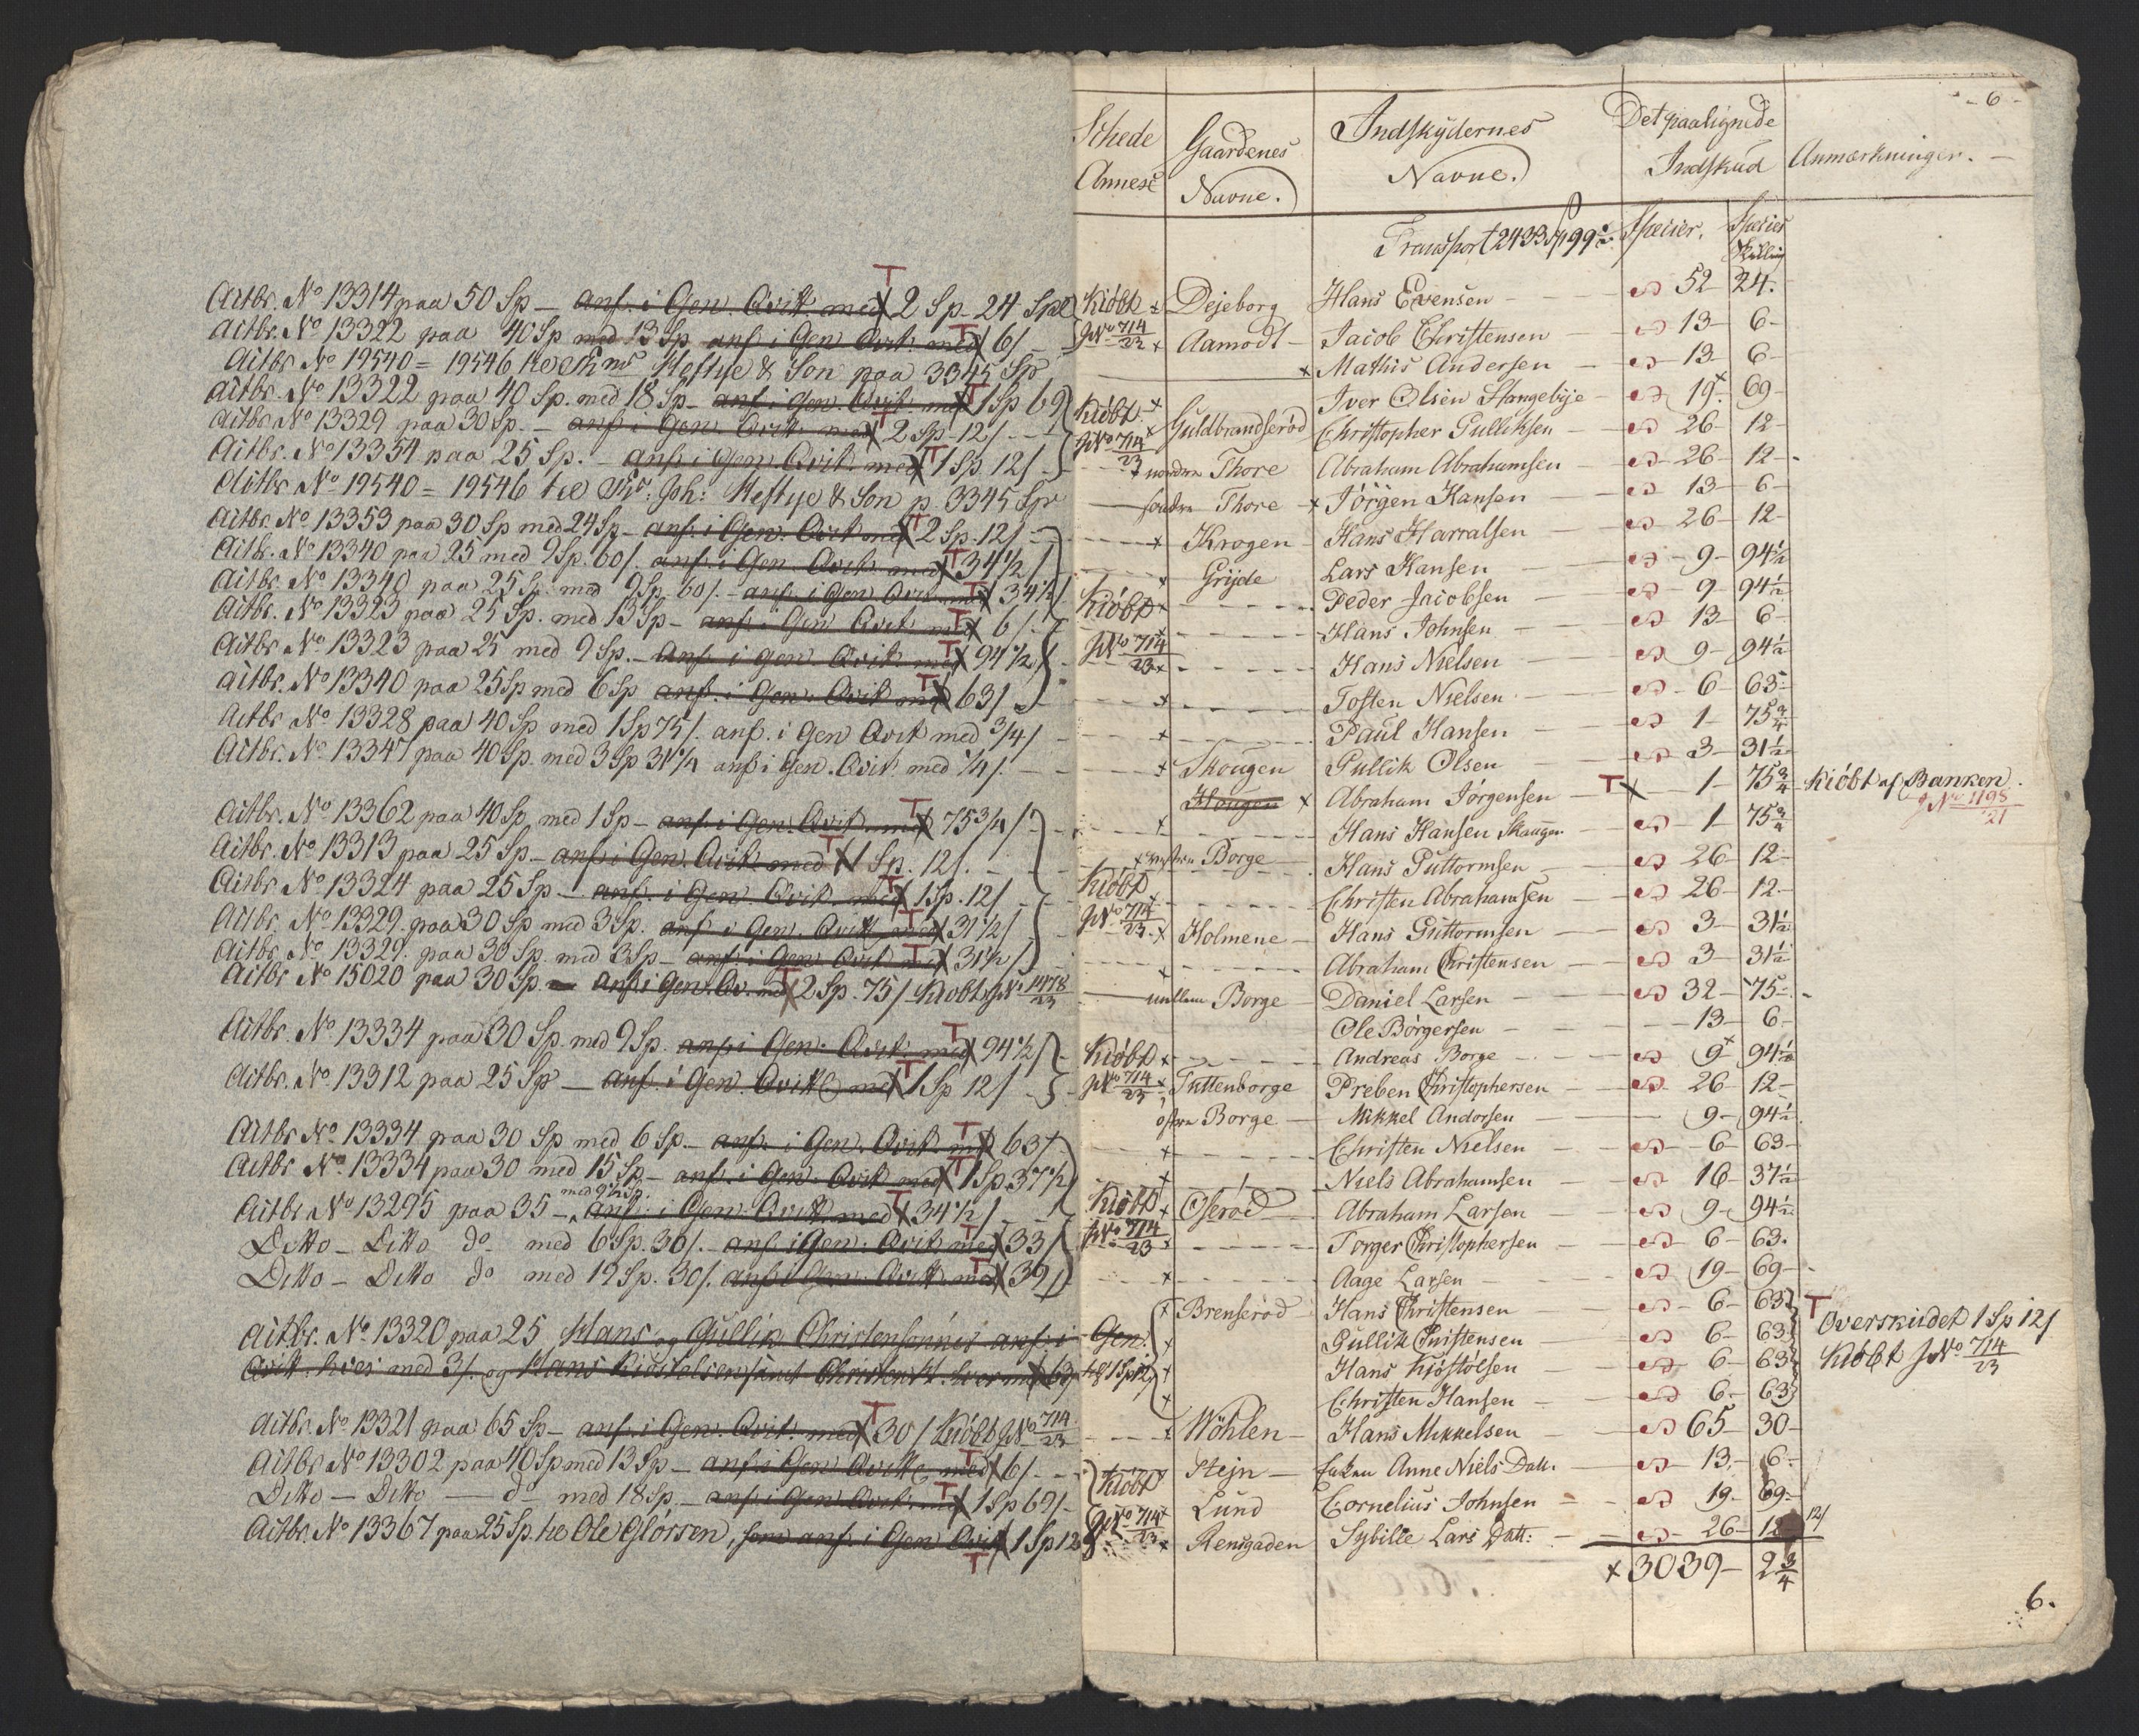 Actbr. No 13314 paa 50 Sp – anf. i Gen. Qvitt. med 2 Sp 24 Sp
T
Actbr. No 13322 paa 40 Sp med 13 Sp anf. i Gen Qvit. med 6/
T
Actbr No 19540 = 19546 Heftye & Son paa 3345 Sp
Actbr. No 13322 paa 40 Sp. med 18 Sp – anf. i Gen. Qvit. med 1 Sp 69
T
Actbr No 13329 paa 30 Sp. – anf. i Gen. Qvit. med 2 Sp 12/
T
Actbr. No 13354 paa 25 Sp. – anf. i Gen. Qvit. med 1 Sp. 12/
T
Actbr No 19540 = 19546 Joh: Heftye & Son p. 3345 Spr
Actbr. No. 13353 paa 30 Sp med 24 Sp – anf. i Gen. Qvit med 2 Sp. 12/
T
Actbr. No 13340 paa 25 med 9 Sp. 60/. anf. i Gen Qvit. med 34 1/2/
T
Actbr. No 13340 paa 25 Sp. med 9 Sp 60/. – anf. i Gen. Qvit med 34 1/2/
T
Actbr. No 13323 paa 25 Sp. med 13 Sp – anf. i Gen Qvit med 6/
T
Actbr. No 13323 paa 25 med 9 Sp. – anf. i gen Qvit med 94 1/2/
T
Actbr. No 13340 paa 25 Sp med 6 Sp anf. i Gen. Qvit med 63/
T
Actbr No 13328 paa 40 Sp med 1 Sp 75/. anf. i Gen Qvit med 3/4/
Actbr. No. 13347 paa 40 Sp. med 3 Sp 31 1/4 anf i Gen. Qvit. med 1/4/.
Actbr. No. 13362 paa 40 Sp, med 1 Sp – anf. i Gen. Qvit. med 75 3/4/
T
Actbr. No 13313 paa 25 Sp – anf. i Gen. Qvit med 1 Sp. 12/.
T
Actbr No 13324 paa 25 Sp – anf. i Gen. Qvit. med 1 Sp. 12/
T
Actbr. No. 13329. paa 30 Sp med 3 Sp. anf i Gen. Qvitt, med 31 1/2/
T
Actbr. No 13329. paa 30 Sp. med 3 Sp – anf. i Gen. Qvit med 31 1/2/
T
Actbr No 15020 paa 30 Sp. – anf i Gen. Qv. med 2 Sp. 75/ Kiöbt JNo 1478/23
T
Actbr. No. 13334 paa 30 Sp. med 9 Sp. anf i Gen. Qvit. med 94 1/2/
T
Actbr. No. 13312 paa 25 Sp – anf. i Gen. Qvitt med 1 Sp 12/
T
Actbr No 13334 paa 30 Sp med 6 Sp. – anf. i Gen. Qvit. med 63/
T
Actbr. No. 13334 paa 30 med 15 Sp – anf. i Gen. Qvit med 1 Sp. 37 1/2/
T
med 9 1/2 Sp.
Actbr No 13295 paa 35 – anf. i Gen. Qvitt. med 34 1/2/
T
Ditto – Ditto do med 6 Sp. 30/. – anf. i Gen. Qvit med 33/
T
Ditto – Ditto do med 19 Sp. 30/. anf i Gen. Qvitt. med 39/
T
Actbr. No. 13320 paa 25 Hans og Gullik Christensönnes anf. i Gen:
Qvitt. hver med 3/. og Hans Kiöstelsen samt Christen H. hver med 63/ 1 Sp 12/
Actbr. No. 13321 paa 65 Sp – anf. i Gen. Qvit. med 30/ Kiöbt JNo 714/23
T
Actbr No 13302 paa 40 Sp med 13 Sp – anf. i Gen Qvitt med 6/
T
Ditto – Ditto – do med 18 Sp. – anf i Gen. Qvit. med 1 Sp 69/
T
Actbr. No 13367 paa 25 Sp. Ole Glörsen, som anf. i Gen Qvit 1 Sp 12
T
– 6 –
Schede Annexe
Gaardenes Navne.
Indskydernes Navne.
Det paalignede Indskud
Anmærkninger. –
Transport 2433 Sp 99 Specier. Species Skilling
Kiöbt Dejeborg Hans Evensen – 52 – 24.
JNo 714/23 × Aamodt – Jacob Christensen – 13 – 6 –
× Mathis Andersen – 13 – 6 –
Kiöbt × Iver Olsen Stangebÿe – 19 – 69 –
JNo 714/23 × Guldbrandseröd Christopher Gulliksen – 26 – 12 –
× nordre Thore Abraham Abrahamsen – 26 – 12 –
söndre Thore × Jörgen Hansen – 13 – 6 –
× Krogen Hans Harralsen – 26 – 12 –
× Grÿde Lars Hansen – 9 – 94 1/2
Kiöbt × Peder Jacobsen – 9 – 94 1/2
× Hans Johnsen – 13 – 6 –
JNo 714/23 × Hans Nielsen – 9 – 94 1/2
× Tosten Nielsen – 6 – 63 –
× Paul Hansen – 1 – 75 3/4
× Skougen Gullik Olsen – 3 – 31 1/2
Hougen × Abraham Jörgensen – T × 1 – 75 3/4 Kiöbt af Banken. JNo 1198/21
× Hans Hansen Skaugen – 1 – 75 3/4
× vestre Borge Hans Guttormsen – 26 – 12 –
Kiöbt × Christen Abrahamsen – 26 – 12 –
JNo 714/23 × Holmene – Hans Guttormsen – 3 – 31 1/2
× Abraham Christensen – 3 – 31 1/2
mellem Borge Daniel Larsen – 32 – 75 –
Ole Börgersen – 13 – 6 –
Kiöbt × Andreas Borge – 9 – 94 1/2
JNo 714/23 × Tuttenborge Preben Christophersen – 26 – 12 –
östre Borge – Mikkel Andorsen – 9 – 94 1/2
× Christen Nielsen – 6 – 63 –
× Niels Abrahamsen – 16 – 37 1/2
Kiöbt × Oseröd Abraham Larsen – 9 – 94 1/2
JNo 714/23 × Torger Christophersen – 6 – 63.
× Aage Larsen – 19 – 69 –
× Brenseröd – Hans Christensen – 6 – 63 T Overskudet 1 Sp 12/
× Gullik Christensen – 6 – 63 Kiöbt JNo 714/23
× Hans Kjöstolsen – 6 – 63
× Christen Hansen – 6 – 63
× Wöhlen – Hans Mikkelsen – 65 – 30 –
Kiöbt × Stejn – Enken Anne Niels Datt. – 13 – 6 –
JNo 714/23 × Lund Cornelius Johnsen – 19 – 69 –
× Rensgaden Sybille Lars Datt: – 26 – 12 12/
× 3039 – 2 3/4
6.